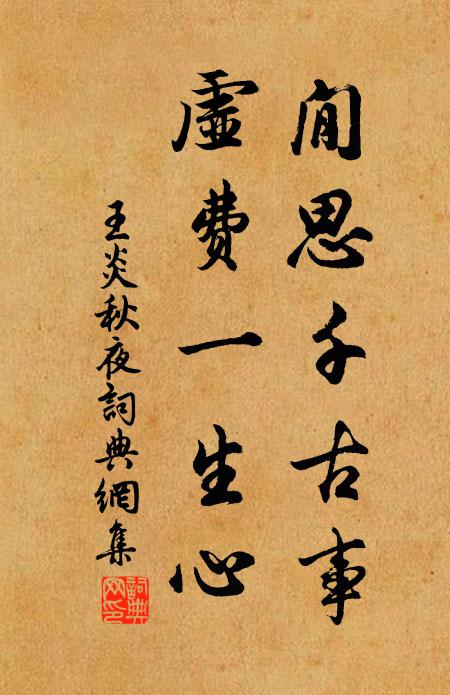 閒思千古事
虛費一生心
王炎秋夜詞典網集
詞典网印